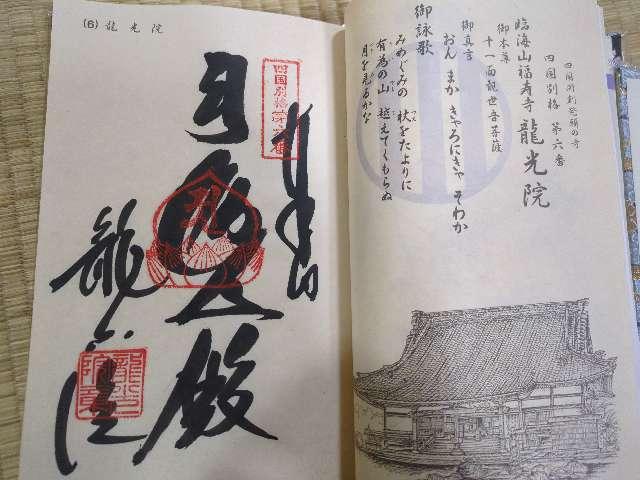 (6) 龍光院
四国別格第六番
龍光院
四国開創 願の寺
四国別格 第六番
臨海山福寿寺 龍光院
御本尊
十一面観世音菩薩
御真言
おん まか きゃろにきゃ そわか
御詠歌
みめぐみの 杖をたよりに
有為の山 越えてくもらぬ
月を見るかな